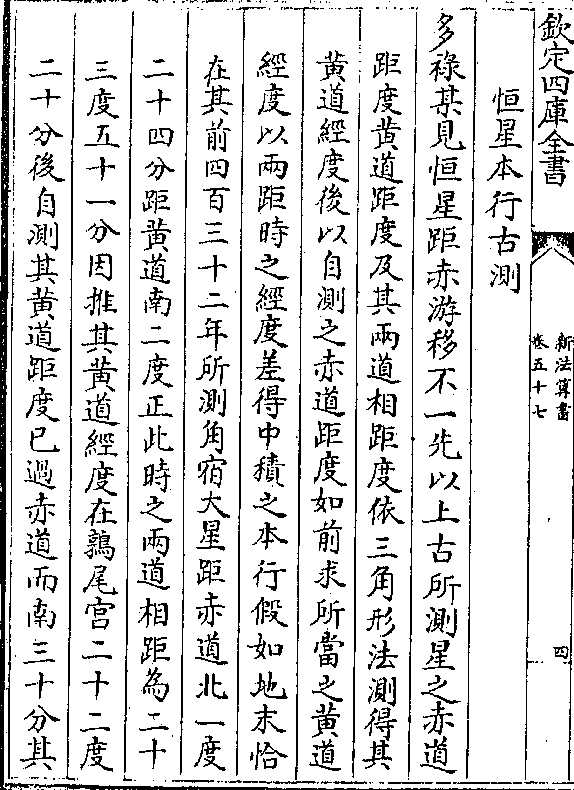 欽定四庫全書
新法算書
卷五十七
四
恒星本行古測
多祿某見恒星距赤游移不一先以上古所測星之赤道
距度黄道距度及其兩道相距度依三角形法測得其
黄道經度後以自測之赤道距度如前求所當之黄道
經度以兩距時之經度差得中積之本行假如地末恰
在其前四百三十二年所測角宿大星距赤道北一度
二十四分距黄道南二度正此時之兩道相距為二十
三度五十一分因推其黄道經度在鶉尾宫二十二度
二十分後自測其黄道距度已過赤道而南三十分其